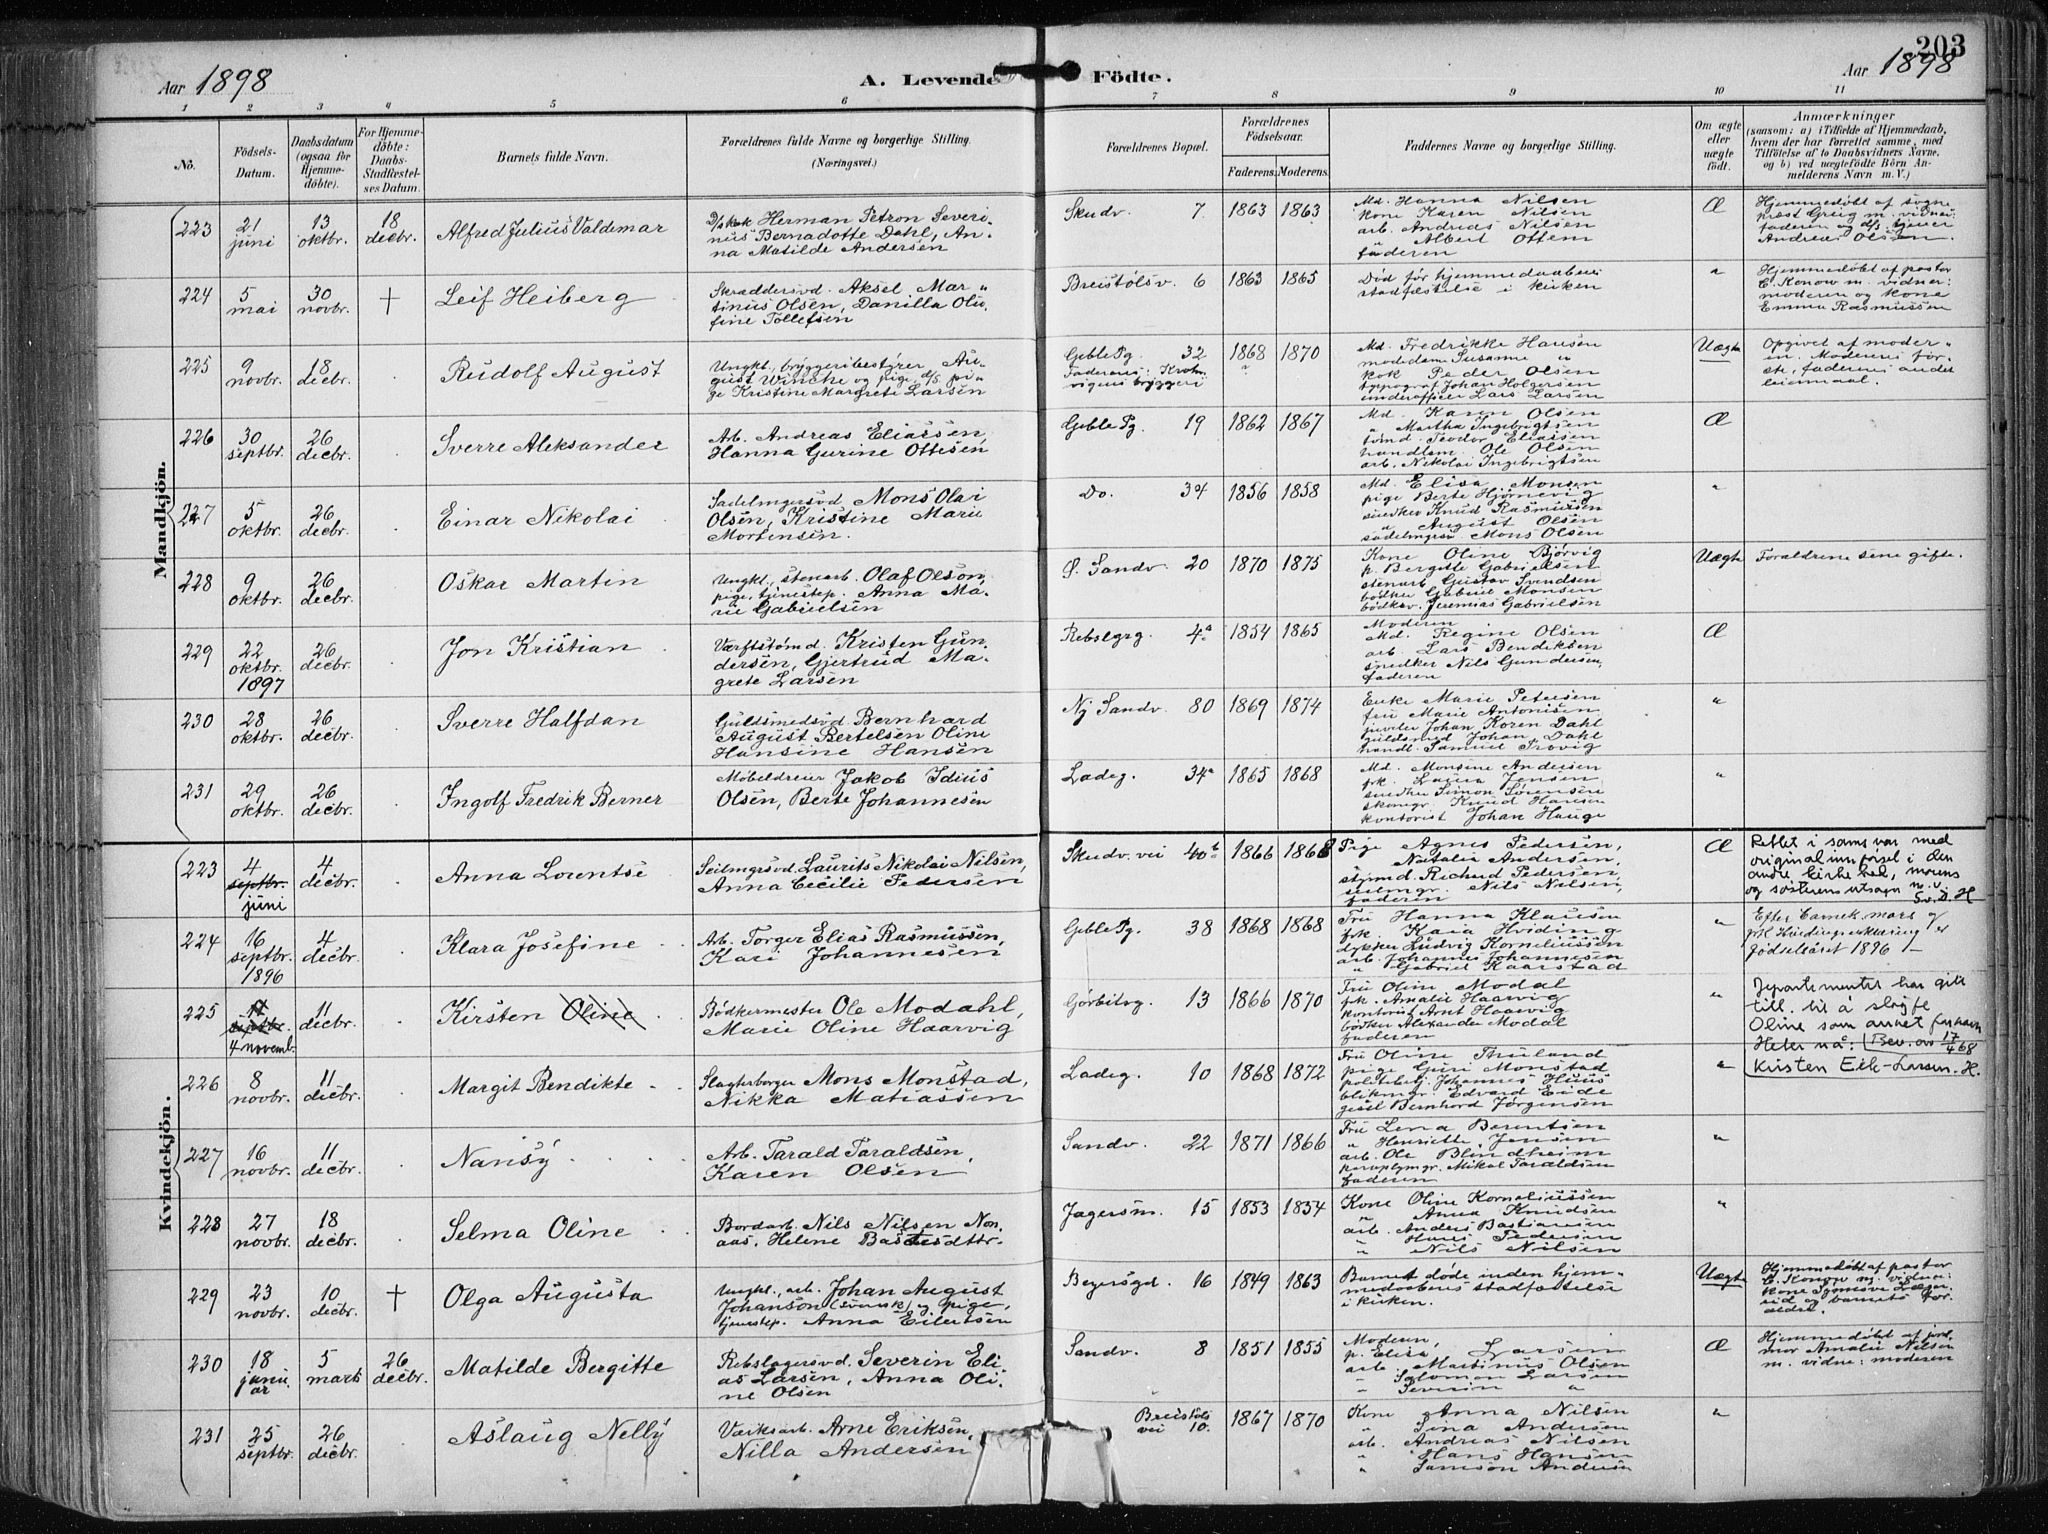 203
Aar 1898
A. Levende Födte.
Aar 1898
1 2 3 4 5 6 7 8 9 10 11
No.
Födsels-
Datum.
Daabsdatum
(ogsaa for
Hjemme-
döbte).
For Hjemme-
döbte:
Daabs-
Stadfæstel-
ses Datum.
Barnets fulde Navn.
Forældrenes fulde Navne og borgerlige Stilling.
(Næringsvei.)
Forældrenes Bopæl.
Forældrenes
Födselsaar.
Faderens. Moderens.
Faddernes Navne og borgerlige Stilling.
Om ægte
eller
uægte
födt.
Anmærkninger
(saasom: a) i Tilfælde af Hjemmedaab,
hvem der har forrettet samme, med
Tilföielse af to Daabsvidners Navne,
og b) ved uægtefödte Börn An-
melderens Navn m. V.)
Mandkjön.
223
21
juni
13
oktbr.
18
decbr.
Alfred Julius Valdemar
D/s kok Herman Petron Severi-
nus Bernadotte Dahl, An-
na Matilde Andersen
Skudv. 7
1863 1863
Md. Hanna Nilsen
kone Karen Nilsen
arb. Andreas Nilsen
" Albert Ottem
faderen
Æ
Hjemmedøbt af sogne
prest Greug m. vidner:
faderen og d/s. tjener
Andreas Olsen.
224
5
mai
30
novbr.
†
Leif Heiberg
Skræddersvd. Aksel Mar-
tinus Olsen, Danilla Olu-
fine Tollefsen
Breistölsv. 6
1863 1865
Død før hjemmedaabens
stadfæstelse i kirken
"
Hjemmedøbt af pastor
C. Konow m. vidner:
moderen og kone
Emma Rasmussen
225
9
novbr.
18
decbr.
Rudolf August
Ungkl., bryggeribestyrer Au-
gust Wincke og pige, d/s. pi-
ge Kristine Margrete Larsen
Geble Pg. 32
Faderens: Kroh-
vigens bryggeri
1868 1870
Md. Fredrikke Hansen
modedame Susanne "
kok Peder Olsen
typograf Johan Holgersen
underofficer Lars Larsen
Uægte
Opgivet af moder-
en. Moderens før-
ste, faderens andet
leiermaal.
226
30
septbr.
26
decbr.
Sverre Aleksander
Arb. Andreas Eliassen,
Hanna Gurine Ottesen
Geble Pg. 19
1862 1867
Md. Karen Olsen
" Martha Ingebrigtsen
tømd. Teodor Eliassen
handlsm. Ole Olsen
arb. Nikolai Ingebrigtsen
Æ
227
5
oktbr.
26
decbr.
Einar Nikolai
Sadelmgersvd. Mons Olai
Olsen, Kristine Marie
Mortensen.
Do. 34
1856 1858
Md. Elisa Monsen
pige Berte Hjørnevig
snedker Knud Rasmussen
" August Olsen
sadelmgsv. Mons Olsen
"
228
9
oktbr.
26
decbr.
Oskar Martin
Ungkl., stenarb. Olaf Olson,
pige, tjenestep. Anna Ma-
rie Gabrielsen
Ø. Sandv. 20
1870 1875
Kone Oline Bjørvig
p. Bergitte Gabrielsen
stenarb Gustav Svendsen
bødker Gabriel Monsen
bødkersv. Jeremias Gabrielsen
Uægte
Forældrene sene gifte.
229
22
oktbr.
1897
26
decbr.
Jon Kristian
Værftstømd. Kristen Gun-
dersen, Gjertrud Ma-
grete Larsen
Rebslgrg. 4a
1854 1865
Moderen
Md. Regine Olsen
arb. Lars Bendiksen
snedker Nils Gundersen,
faderen
Æ
230
28
oktbr.
26
decbr.
Sverre Halfdan
Guldsmedsvd Bernhard
August Bertelsen Oline
Hansine Hansen
Nj Sandv. 80
1869 1874
Enke Marie Petersen
fru Marie Antonisen
juveler Johan Koren Dahl
guldsmed Johan Dahl
handl. Samuel Trovig
"
231
29
oktbr.
26
decbr.
Ingolf Fredrik Berner
Møbeldreier Jakob Idius
Olsen, Berte Johannesen
Ladeg. 34a
1865 1868
Md. Monsine Andersen
frk. Laura Jensen
snedker Simon Sørensen
skomgr. Knud Hansen
kontorist Johan Hauge
"
Kvindekjön.
223
4
septbr.
juni
4
decbr.
Anna Lorentse
Seilmgrsvd. Laurits Nikolai Nilsen,
Anna Cecilie Pedersen
Skudv. vei 40b
1866 1868
Pige Agnes Pedersen,
" Natalia Andersen,
styrmd. Richard Pedersen,
seilmgr. Nils Nilsen,
faderen
Æ
Rettet i samsvar med
original innførsel i den
andre kirkebok, morens
og søsterens utsagn m.v.
Sv.D. H
224
16
septbr.
1896
4
decbr.
Klara Josefine
Arb. Torger Elias Rasmussen,
Kari Johannesen
Geble Pg. 38
1868 1868
Fru Hanna Klausen
frk. Kaia Hviding
dykker Ludvig Korneliussen
arb. Johannes Johannesen
" Gabriel Kaarstad
"
Efter barnek. mors og
frk Hvidings erklæring er
fødselsåret 1896
225
17
septbr.
4 novemb.
11
decbr.
Kirsten Oline
Bødkermester Ole Modahl,
Marie Oline Haarvig
Görbitsg. 13
1866 1870
Fru Oline Modal
frk. Amalie Haarvig
kontorist Arnt Haarvig
bødker Alexander Modal
faderen
"
Departementet har gitt
till. til å sløyfe
Oline som annet fornavn
Heter nå: Bev. av 17/4 68
Kirsten Eik-Larsen. H.
226
8
novbr.
11
decbr.
Margit Bendikte
Slagterborger Mons Monstad,
Nikka Matiassen
Ladeg. 10
1868 1872
Fru Oline Thuland
pige Guri Monstad
politibetj. Johannes Huus
blikmgr. Edvard Eide
gesel Bernhord Jørgensen
"
227
16
novbr.
11
decbr.
Nansy
Arb. Tarald Taraldsen,
Karen Olsen
Sandv. 22
1871 1866
Fru Lena Berentsen
" Henriette Jensen
arb. Ole Blindheim
paraplymgr. Mikal Taraldsen
faderen
"
228
27
novbr.
18
decbr.
Selma Oline
Bordarb. Nils Nilsen Non-
aas, Helene Bastesdttr.
Jægersm. 15
1853 1854
Kone Oline Korneliussen
" Anna Knudsen
arb. Anders Bastiansen
" Hans Pedersen
" Nils Nilsen
"
229
23
novbr.
10
decbr.
†
Olga Augusta
Ungkl., arb. Johan August
Johanson (svensk) og pige,
tjenestep. Anna Eilertsen
Beyersgd. 16
1849 1863
Barnet døde inden hjem-
medaabens stadfæstelse
i kirken.
Uægte
Hjemmedøbt af pastor
C. Konow m. vidner:
kone
og barnets for-
ældre.
230
18
janu-
ar
5
marts
26
decbr.
Matilde Bergitte
Rebslagersvd. Severin Eli-
as Larsen, Anna Oli-
ne Olsen
Sandv. 8
1851 1855
Moderen,
p. Elisa Larsen
arb. Martinus Olsen
" Salomon Larsen
" Severin "
Æ
Hjemmedøbt af jord-
mor Amalie Nilsen
m. vidne: moderen
231
25
septbr.
26
decbr.
Aslaug Nelly
Værksarb. Arne Eriksen,
Nilla Andersen
Breistöls
vei 10.
1867 1870
Kone Anna Nilsen
" Sina Andersen
arb. Andreas Nilsen
" Hans Hansen
" Samson Andersen
"